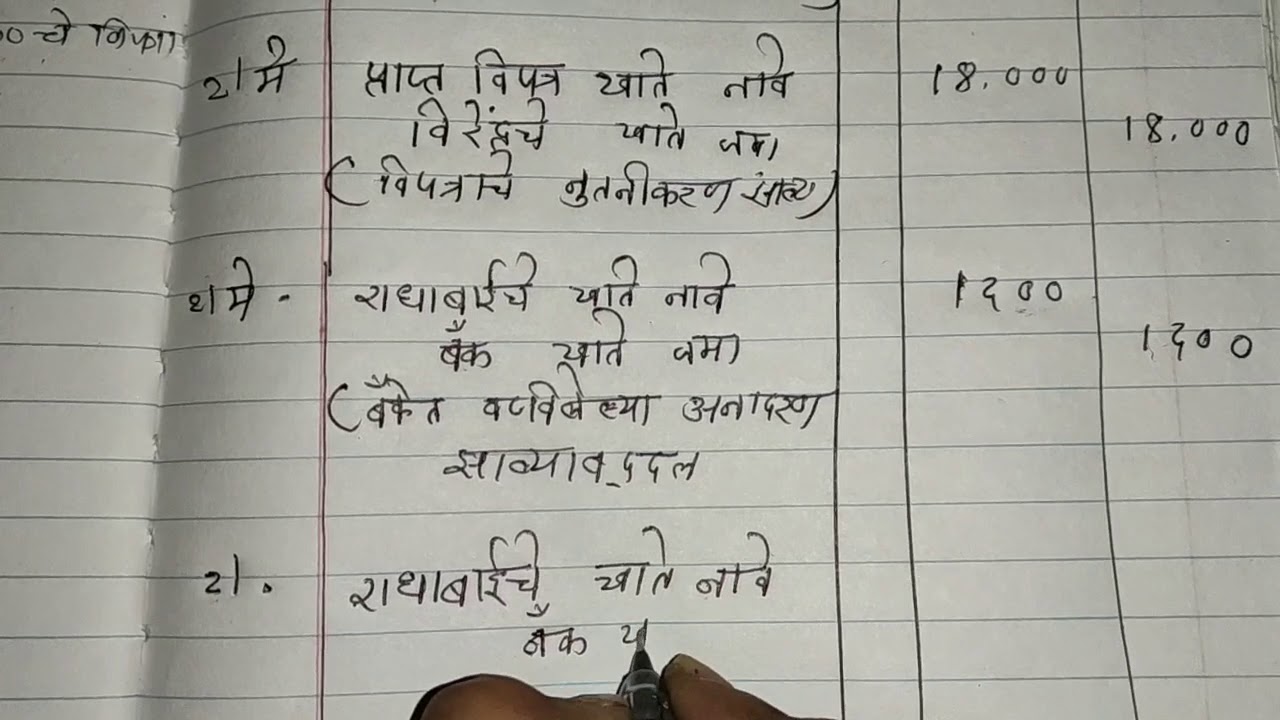 ०चे विपत्र
21 मे प्राप्त विपत्र खाते नावे 18,000
विरेंद्रचे खाते जमा 18,000
(विपत्राचे नुतनीकरण झाल्य)
21 मे - राधाबाईचे खाते नावे 1200
बँक खाते जमा 1200
(बँकेत वटविलेल्या अनादरण
झाल्याबद्दल
21. राधाबाईचे खाते नावे
बँक